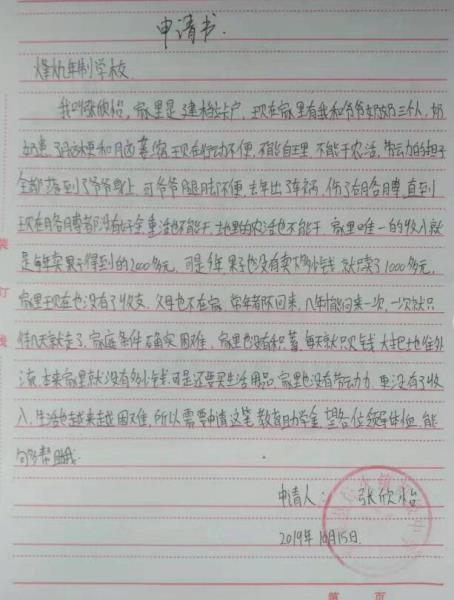 申请书.
烽火九年制学校
我叫张欣怡, 家里是建档立卡户, 现在家里有我和爷爷奶奶三个人, 奶
奶患了脑梗和脑萎缩现在行动不便, 不能自理, 不能干农活, 劳动力的担子
全部落到了爷爷身上, 可爷爷腿脚不便, 去年出了车祸, 伤了胳膊, 直到
现在胳膊都没有好全重活也不能干, 地里的农活也不能干, 家里唯一的收入就
是每年卖果子得到的2000多元, 可是今年果子也没有卖下多少钱, 就卖了1000多元,
家里现在也没有了收支, 父母也不在家, 常年都不回来, 几年才能回来一次, 一次就只
待几天就走了, 家庭条件确实困难, 家里也没有积蓄, 每天就只见钱大把大把往外
流, 本来家里就没有多少钱, 可是还要买生活用品, 家里也没有劳动力, 更没有了收
入, 生活也越来越困难, 所以需要申请这笔教育助学金, 望各位领导体恤, 能
够帮助我.
申请人: 张欣怡
2019年10月15日.
第 页
装
订
线